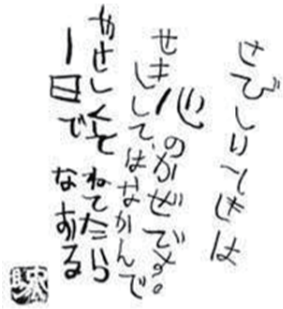 さびしいときは
心のかぜです。
せきして、はなかんで
やさしくしてねてたら
一日でなおる